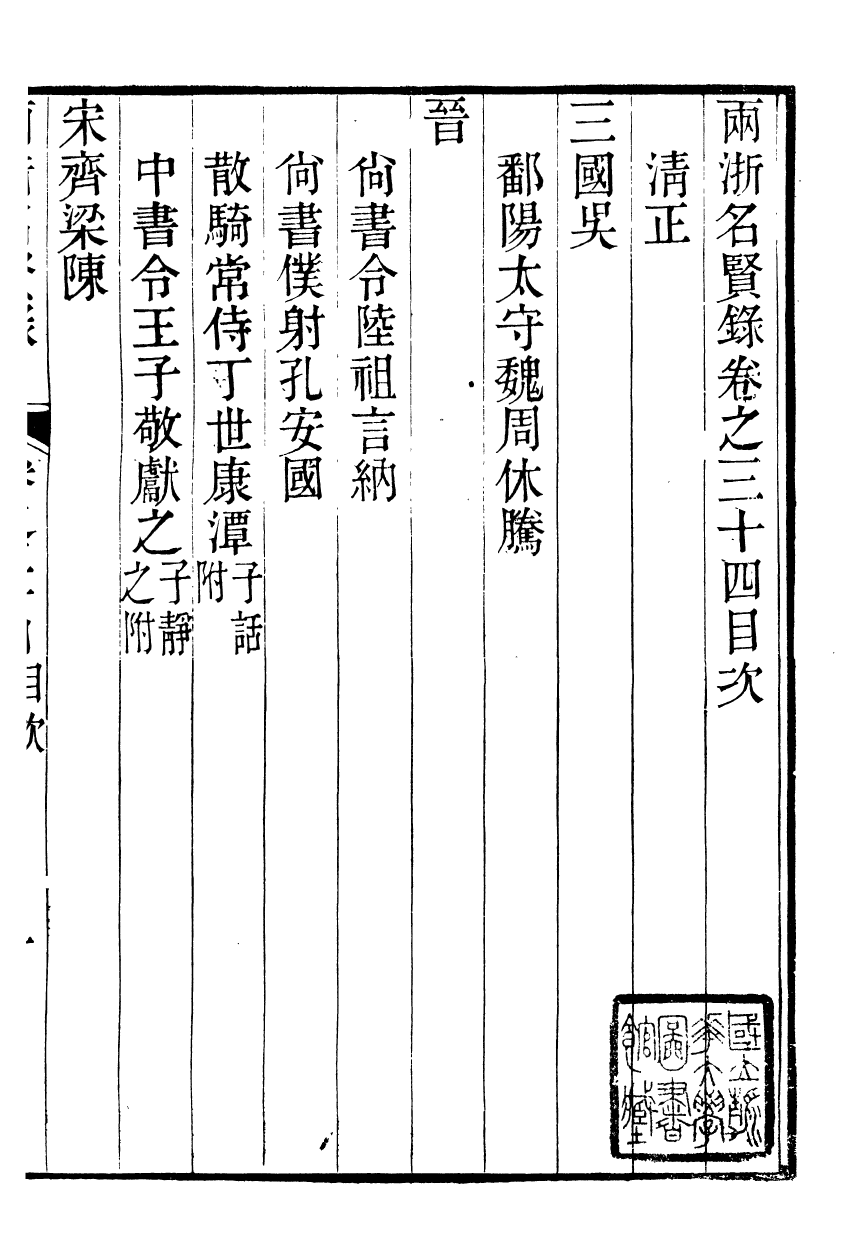 兩浙名賢錄卷之三十四目次
清正
三國吳
鄱陽太守魏周休騰
晉
尙書令陸祖言納
尙書僕射孔安國
散騎常侍丁世康潭子話附
中書令王子敬獻之子靜之附
宋齊梁陳
目次
國立清華大學圖書館藏